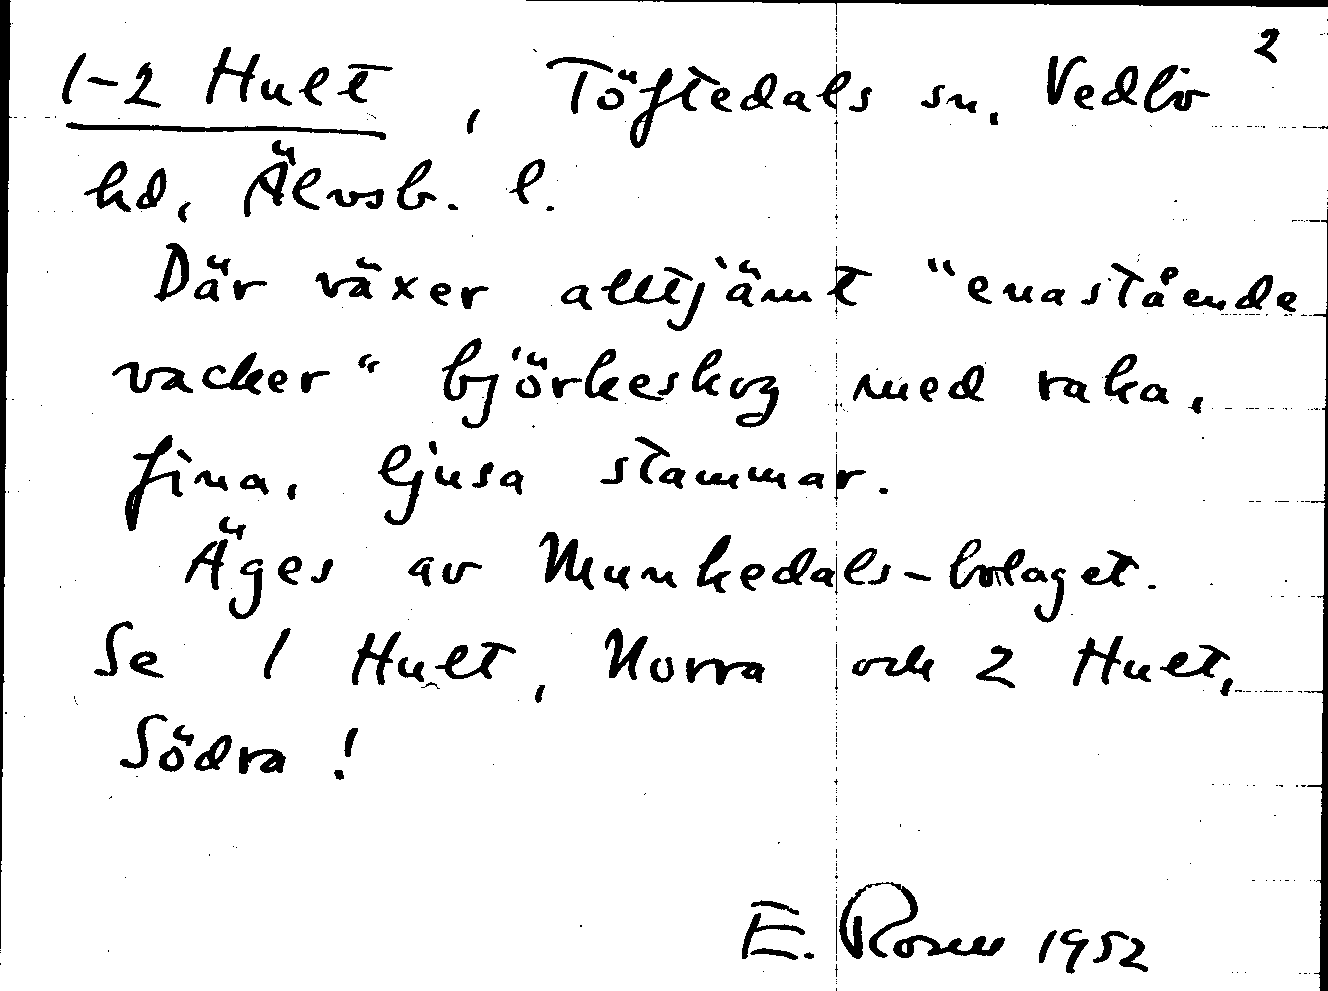 2
1-2 Hult, Töftedals sn, Vedbo
hd, Älvsb. l.
Där växer alltjämt "enastående
vacker" björkeskog med raka,
fina, ljusa stammar.
Äges av Munkedals-bolaget.
Se 1 Hult, Norra och 2 Hult,
Södra!
E. Rosen 1952